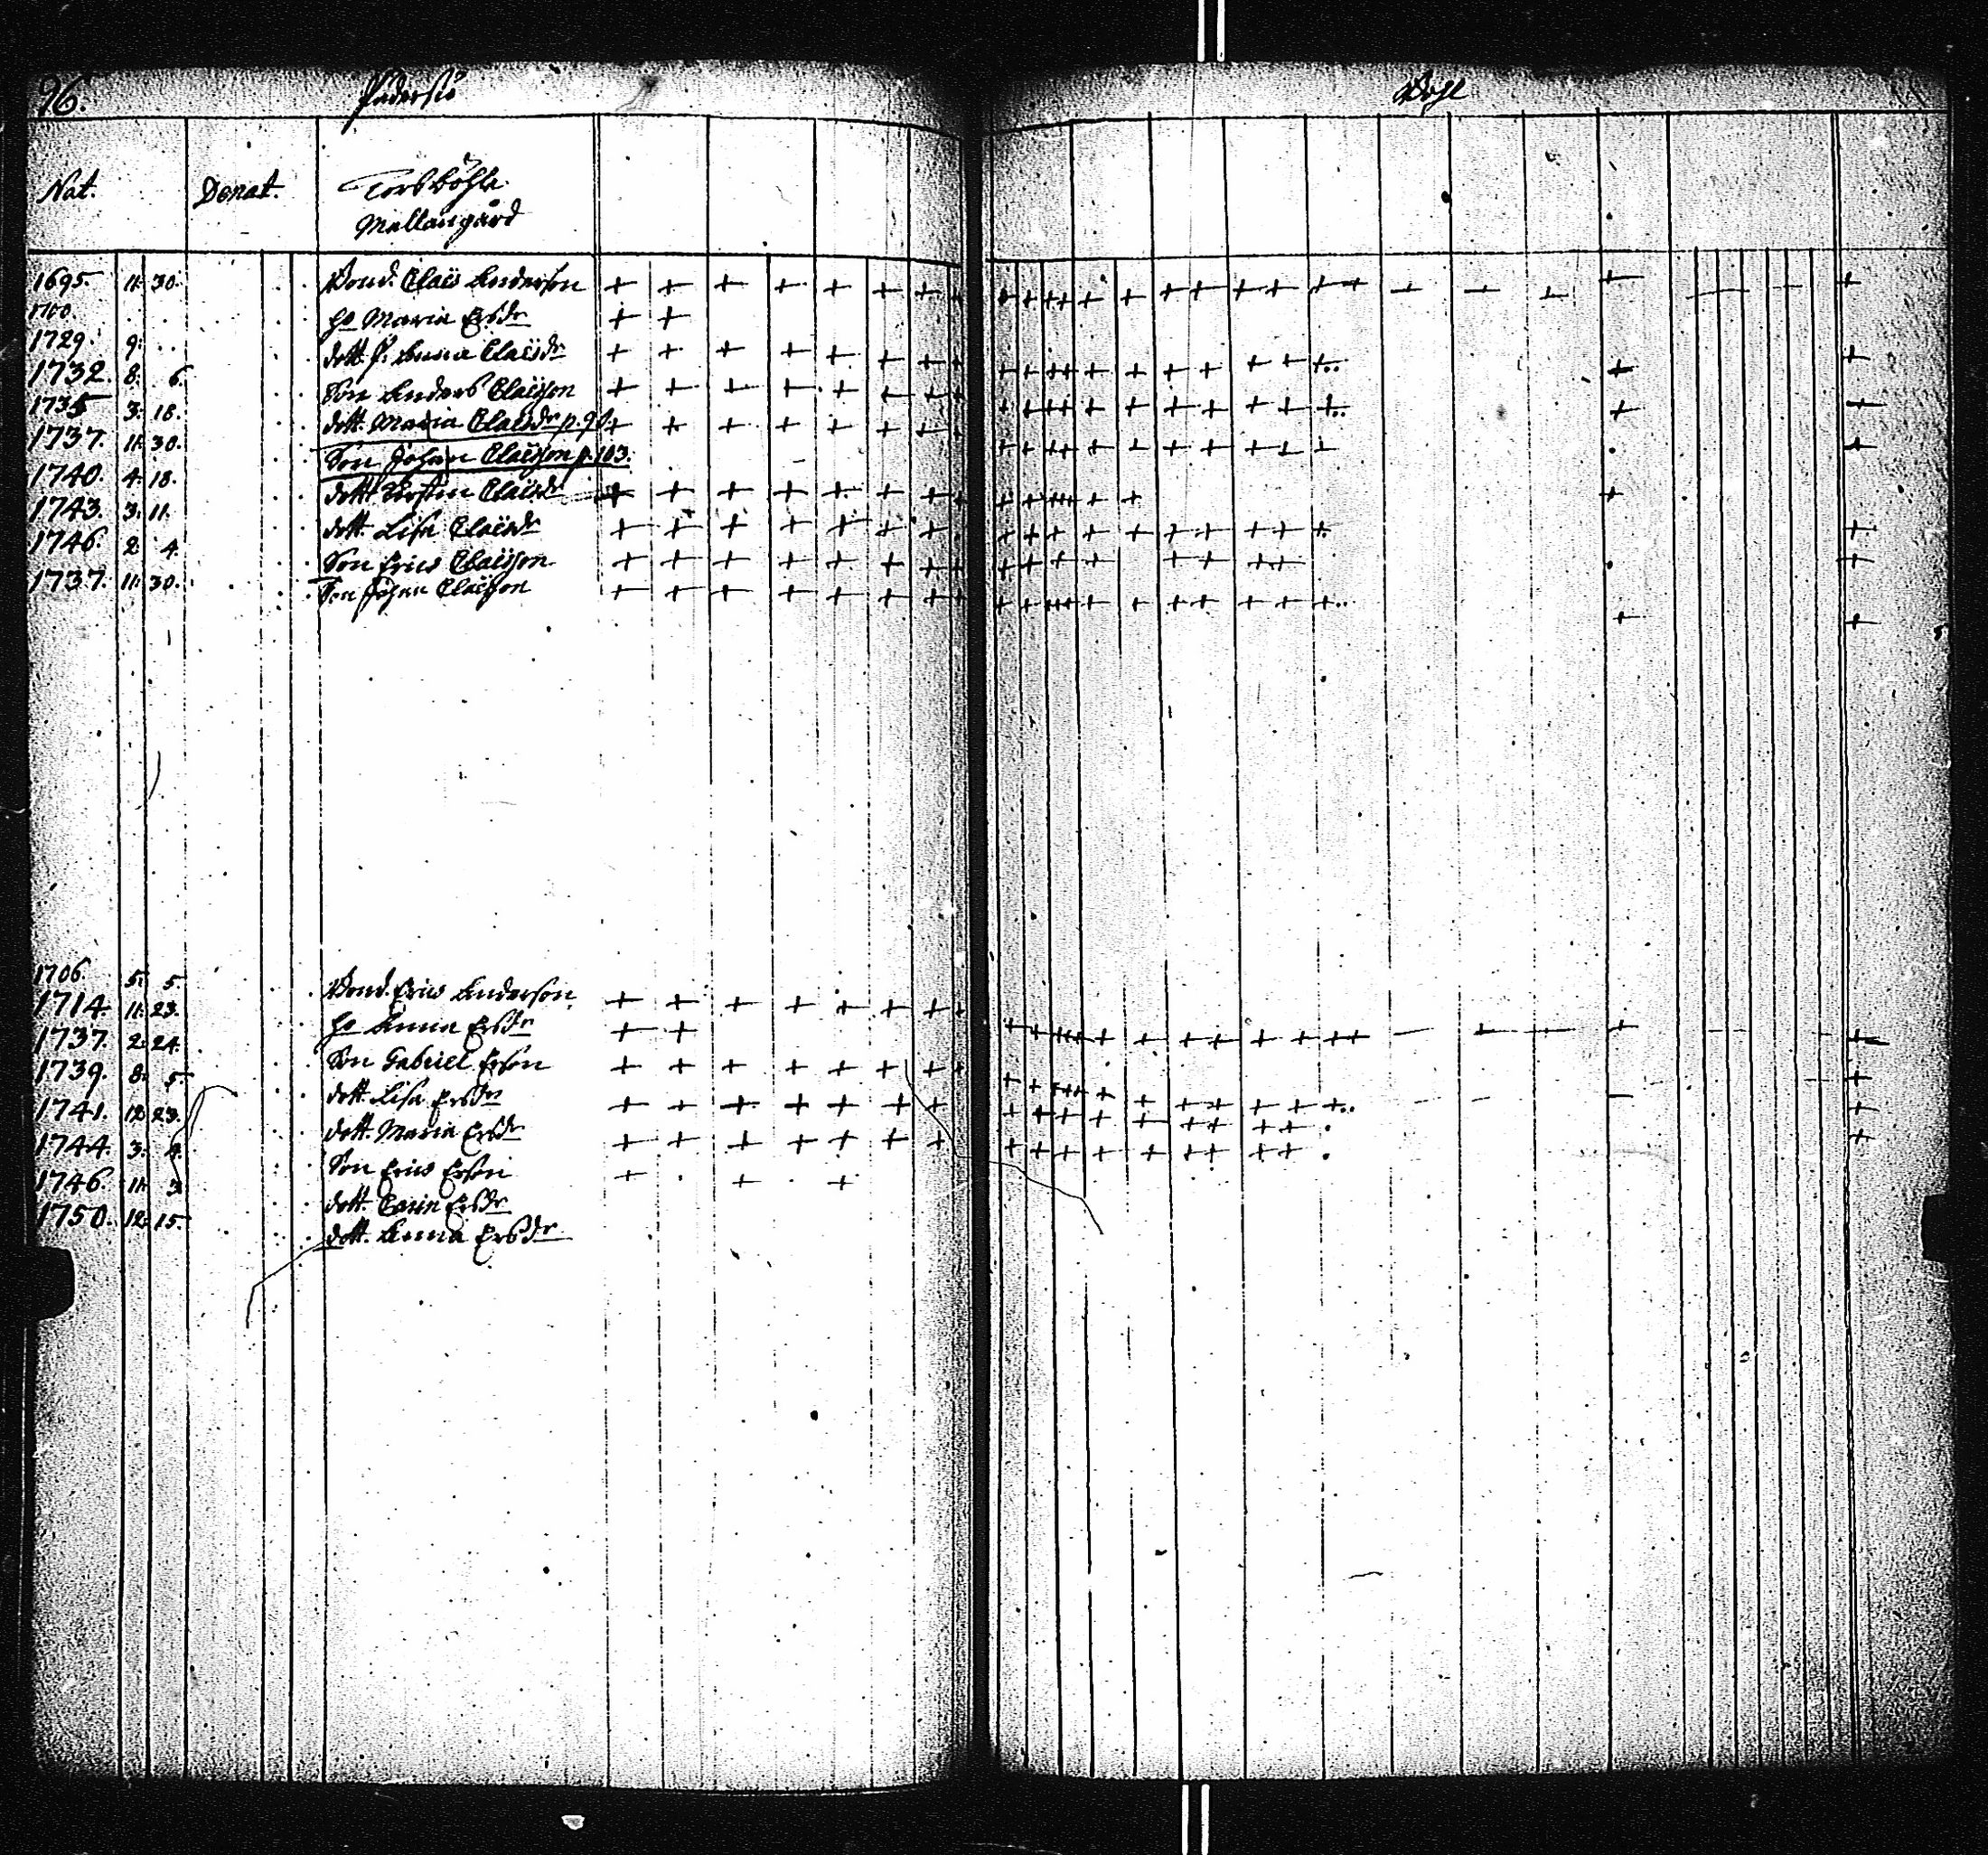 96.
Pedersiö
Wohl
Nat. Denat. Torsböhle
Mellangård
1695. 11. 30. Bond. Claës Anderson
1700. Ho Maria Ersdr
1729. 9. dott. Anna Claësdr
1732. 8. 6. Son Anders Claësson
1735 3. 18. dott. Maria Claësdr p.
1737. 11. 30. Son Johan Claësson p. 103.
1740. 4. 18. dott. Kirstin Claësdr
1743. 3. 11. dott. Lisa Claësdr
1746. 2. 4. Son Eric Claësson
1737. 11. 30. Son Johan Claësson
1706. 5. 5. Bond. Eric Anderson
1714. 11. 23. Ho Anna Ersdr
1737. 2. 24. Son Gabriel Erson
1739. 8. 5. dott. Lisa Ersdr
1741. 12. 23. dott. Maria Ersdr
1744. 3. 4. Son Eric Erson
1746. 11. 3. dott. Carin Ersdr
1750. 12. 15. dott. Anna Ersdr